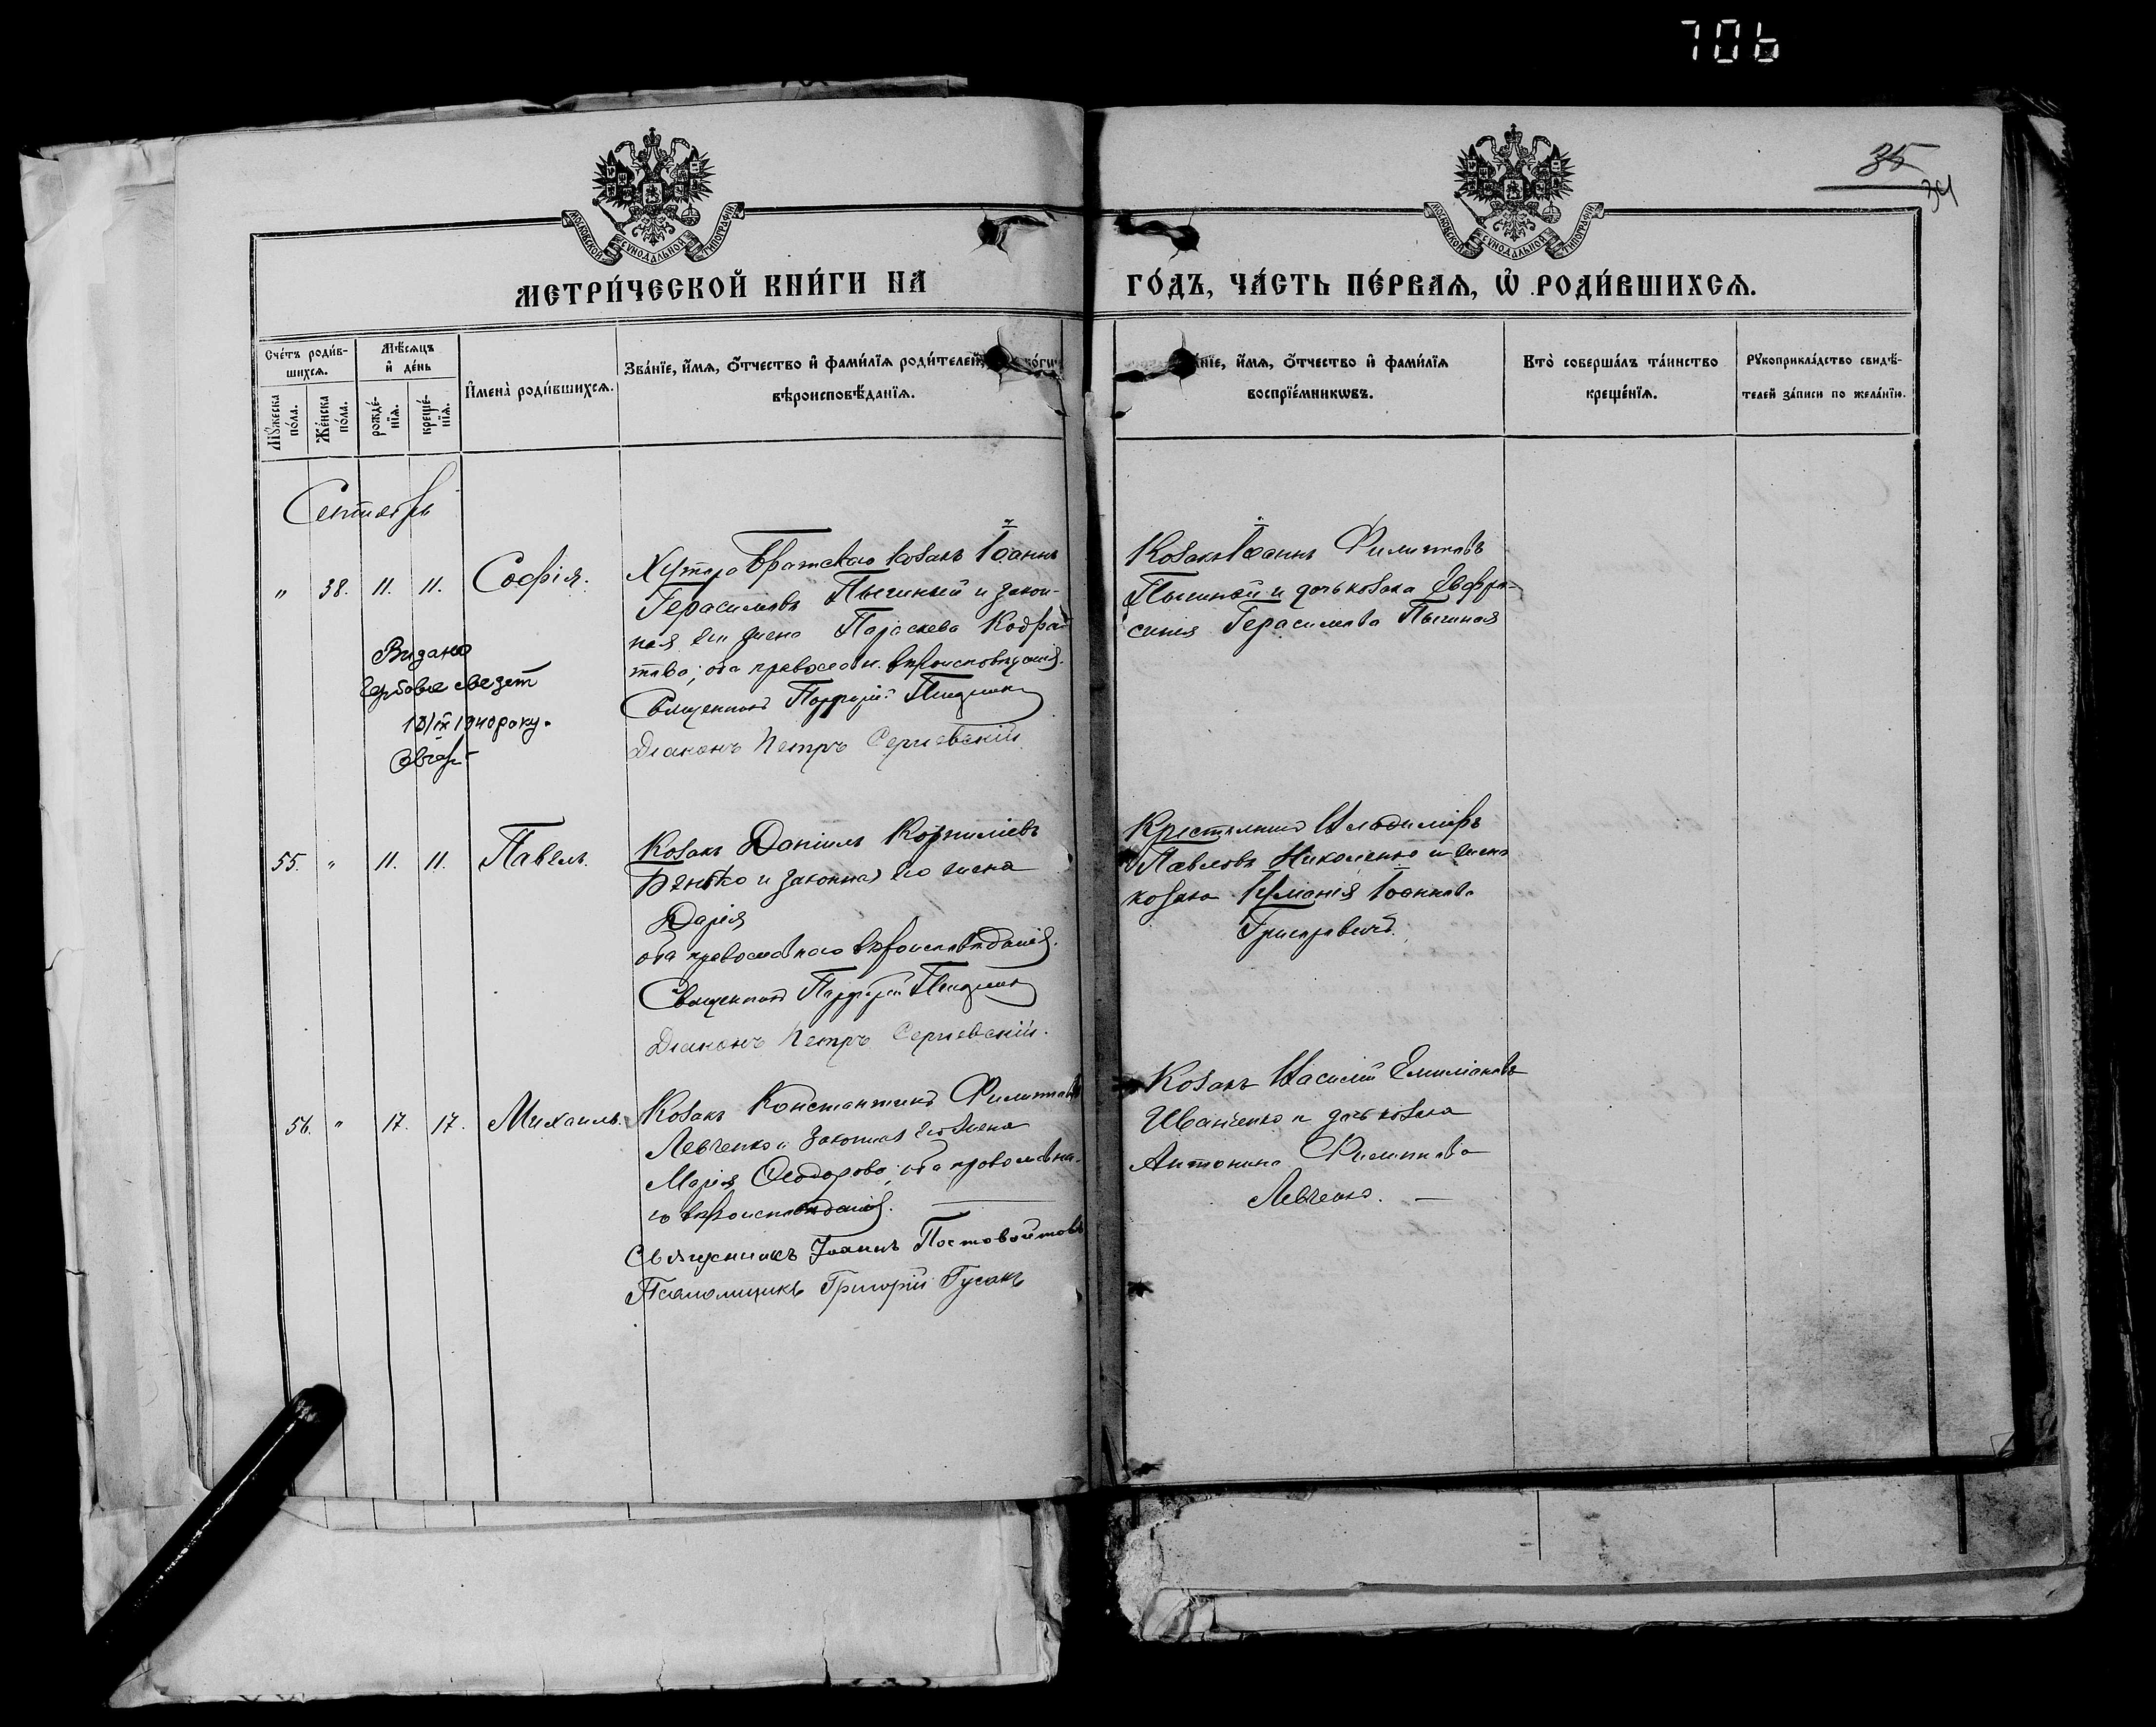 706
35
34
МОСКОВСКОЙ СѴНОДАЛЬНОЙ ТИПОГРАФІИ
МОСКОВСКОЙ СѴНОДАЛЬНОЙ ТИПОГРАФІИ
МЕТРИ́ЧЕСКОЙ КНИ́ГИ НА
ГО́ДЪ, ЧА́СТЬ ПЕ́РВАѦ, Ѡ РОДИ́ВШИХСѦ.
Сче́тъ роди́в-
шихсѧ.
Мѣ́сѧцъ
и҆ де́нь
Мꙋ́жеска
по́ла.
Же́нска
по́ла.
рожде́-
нїѧ.
креще́-
нїѧ.
И҆мена̀ роди́вшихсѧ.
Зва́нїе, и҆́мѧ, ѻ҆́тчество и҆ фами́лїѧ роди́телей,
вѣроисповѣ́данїѧ.
и҆́мѧ, ѻ҆́тчество и҆ фами́лїѧ
воспрїе́мникѡвъ.
Кто̀ соверша́лъ та́инство
креще́нїѧ.
Рꙋкоприкла́дство свидѣ́-
телей за́писи по жела́нїю.
Сентябрь
" 38. 11. 11. Софія.
Хутора Братскаго козакъ Іоаннъ
Герасимовъ Пычиный и закон-
ная его жена Параскева Кодра-
това; оба православн. вѣроисповѣданія.
Священникъ Порфирій
Діаконъ Петръ Сергіевскій
Козакъ Іоаннъ Филипповъ
Пычиный и дочь козака Евфро-
синія Герасимова Пычиная
Видано
1940 року.
55. " 11. 11. Павелъ.
Козакъ Даніилъ Корниліевъ
и законная его жена
Дарія
оба православнаго вѣроисповѣданія.
Священникъ Порфирій
Діаконъ Петръ Сергіевскій.
Крестьянинъ Владиміръ
Павловъ Николенко и жена
козака Іоаннова
56. " 17. 17. Михаилъ.
Козакъ Константинъ Филипповъ
Левченко и законная его жена
Марія Ѳеодорова; оба православна-
го вѣроисповѣданія.
Священникъ Іоаннъ Постовойтовъ
Псаломщикъ Григорій Гусакъ
Козакъ Василій Емиліановъ
Иванченко и дочь козака
Антонина Филиппова
Левченко.